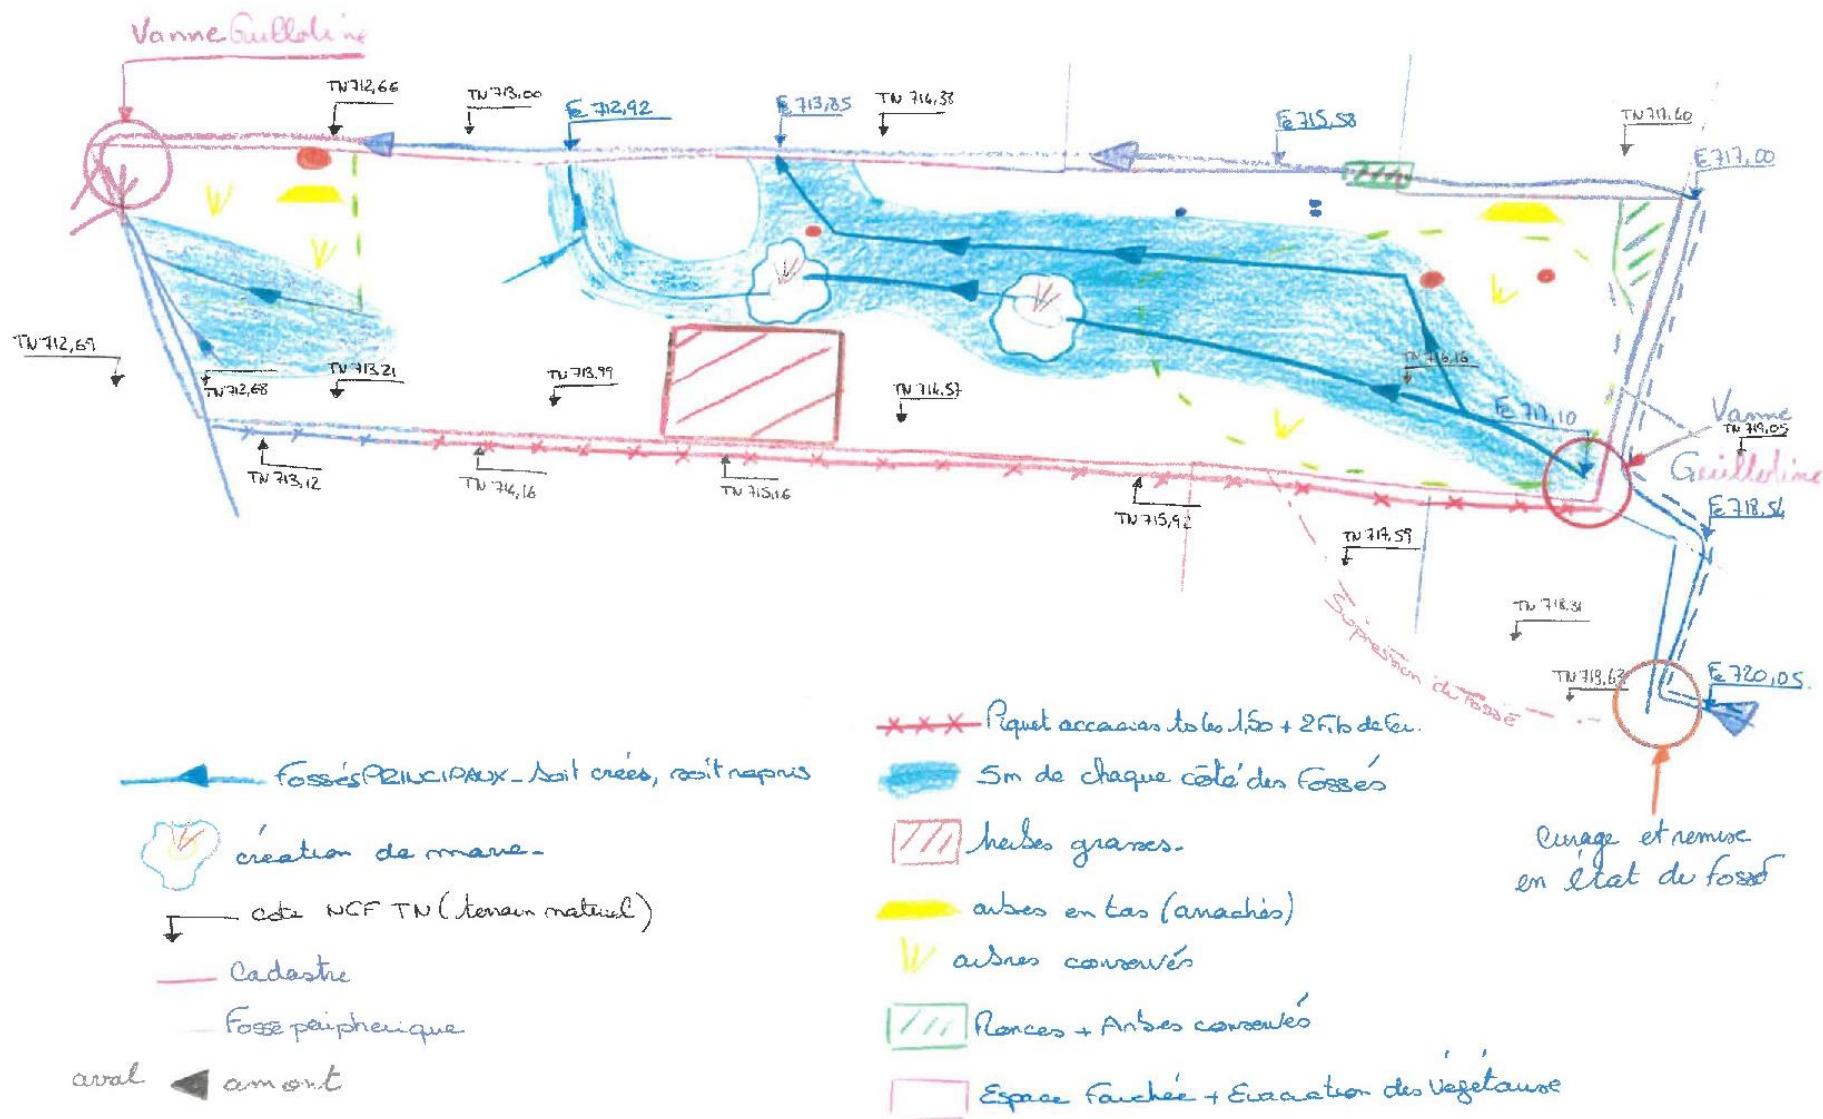 Vanne Guillotine
TN 712,66
TN 713,00
Fe 712,92
Fe 713,85
TN 714,38
Fe 715,58
TN 717,60
Fe 717,00
TN 712,69
TN 712,68
TN 713,21
TN 713,99
TN 714,57
TN 716,16
Fe 717,10
Vanne
Guillotine
TN 719,05
TN 713,12
TN 714,16
TN 715,16
TN 715,92
Fe 718,54
TN 717,59
TN 718,31
Supression du Fossé
TN 719,63
Fe 720,05
Curage et remise
en état du fossé
Fossés PRINCIPAUX - soit créés, soit repris
création de mare -
cote NGF TN (terrain naturel)
Cadastre
Fossé périphérique
aval amont
Piquet accacias ts les 1,50 + 2 Fils de Fer.
5m de chaque côté des Fossés
herbes grasses -
arbres en tas (arrachés)
arbres conservés
Ronces + Arbres conservés
Espace Fauchée + Evacuation des Végétaux